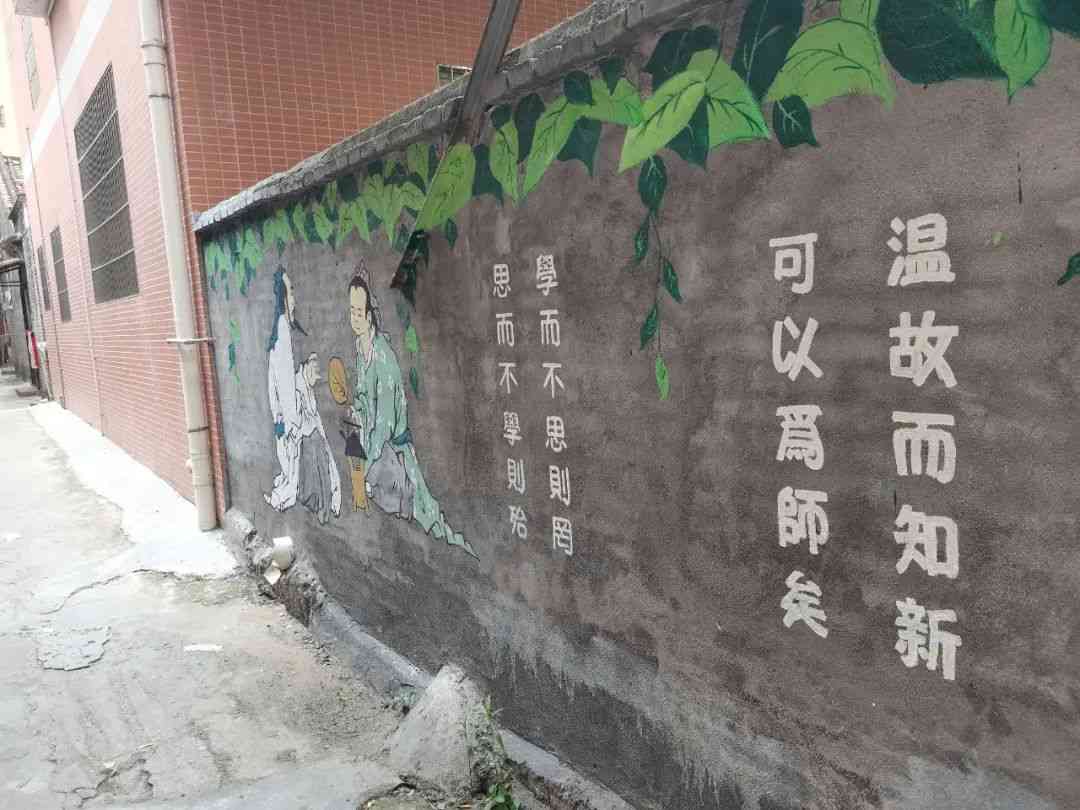 温故而知新
可以爲師矣
學而不思則罔
思而不學則殆